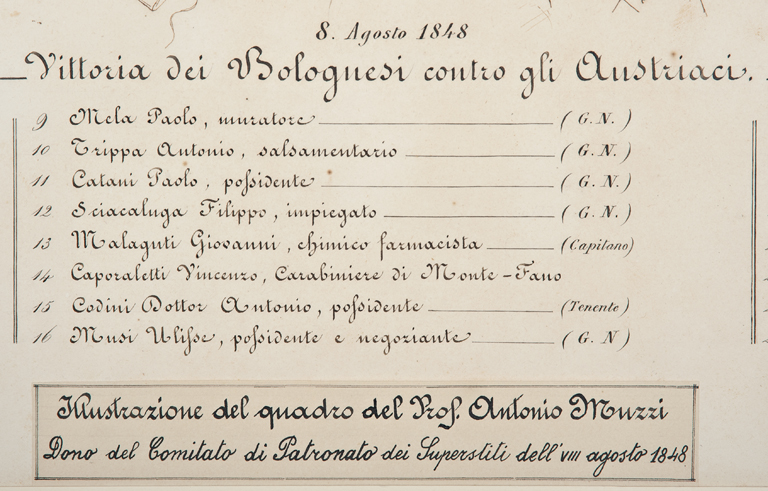 8. Agosto 1848
Vittoria dei Bolognesi contro gli Austriaci.
9 Mela Paolo, muratore (G.N.)
10 Trippa Antonio, salsamentario (G.N.)
11 Catani Paolo, poſsidente (G.N.)
12 Sciacaluga Filippo, impiegato (G.N.)
13 Malaguti Giovanni, chimico farmacista (Capitano)
14 Caporaletti Vincenzo, Carabiniere di Monte-Fano
15 Codini Dottor Antonio, poſsidente (Tenente)
16 Musi Uliſse, poſsidente e negoziante (G.N)
Illustrazione del quadro del Prof. Antonio Muzzi
Dono del Comitato di Patronato dei Superstiti dell'VIII agosto 1848